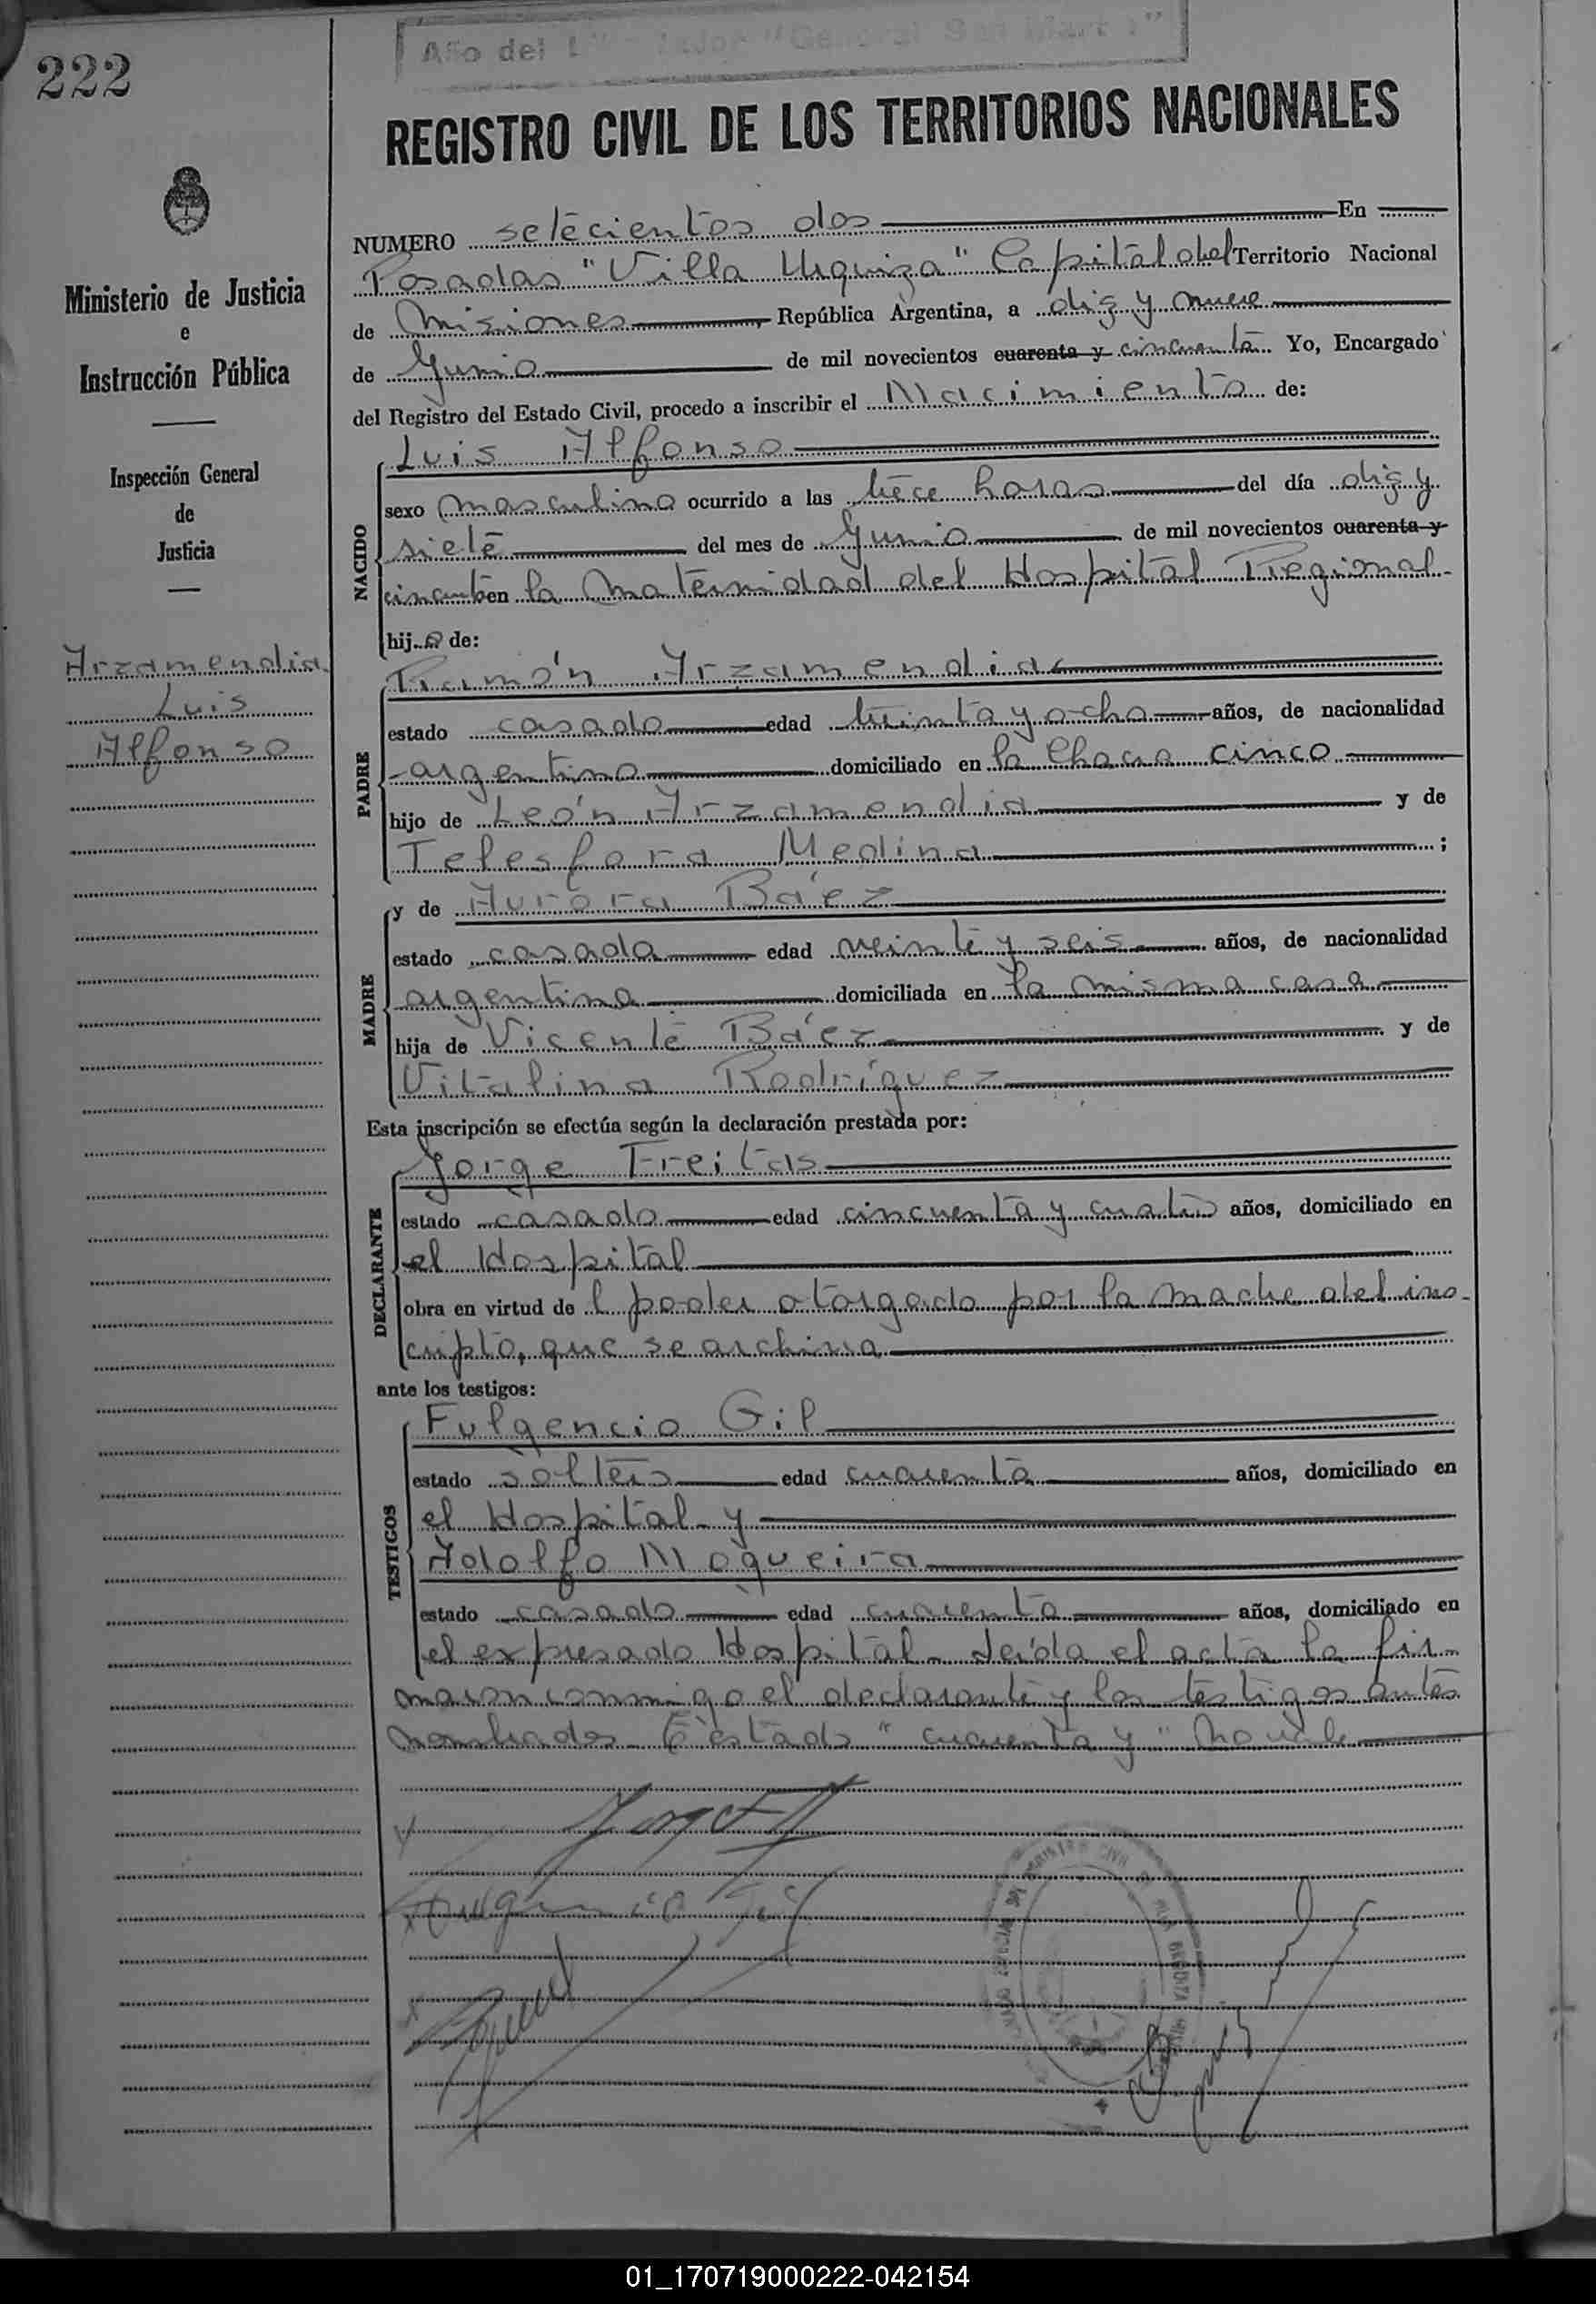 222
Año del L "General San Mart
REGISTRO CIVIL DE LOS TERRITORIOS NACIONALES
Ministerio de Justicia
e
Instrucción Pública
Inspección General
de
Justicia
Arzamendia
Luis
Alfonso
NUMERO setecientos dos En
Posadas "Villa Urquiza" Capital del Territorio Nacional
de Misiones, República Argentina, a diez y nueve
de Junio de mil novecientos cuarenta y cincuenta Yo, Encargado
del Registro del Estado Civil, procedo a inscribir el Nacimiento de:
NACIDO
Luis Alfonso
sexo masculino ocurrido a las trece horas del día diez y
siete del mes de Junio de mil novecientos cuarenta y
cincuenta en la Maternidad del Hospital Regional
hijo de:
PADRE
Ramón Arzamendia
estado casado edad treinta y ocho años, de nacionalidad
argentino domiciliado en la Chacra cinco
hijo de León Arzamendia y de
Telesfora Medina ;
MADRE
y de Aurora Báez
estado casada edad veinte y seis años, de nacionalidad
argentina domiciliada en la misma casa
hija de Vicente Báez y de
Vitalina Rodríguez
Esta inscripción se efectúa según la declaración prestada por:
DECLARANTE
Jorge Freitas
estado casado edad cincuenta y cuatro años, domiciliado en
el Hospital
obra en virtud de l poder otorgado por la madre del ins-
cripto, que se archiva
ante los testigos:
TESTIGOS
Fulgencio Gil
estado soltero edad cuarenta años, domiciliado en
el Hospital y
Adolfo Moqueira
estado casado edad cuarenta años, domiciliado en
el expresado Hospital. Leída el acta la fir-
maron conmigo el declarante y los testigos antes
nombrados. Testado "cuarenta y" no vale
Fulgencio Gil
REGISTRO CIVIL
01_170719000222-042154